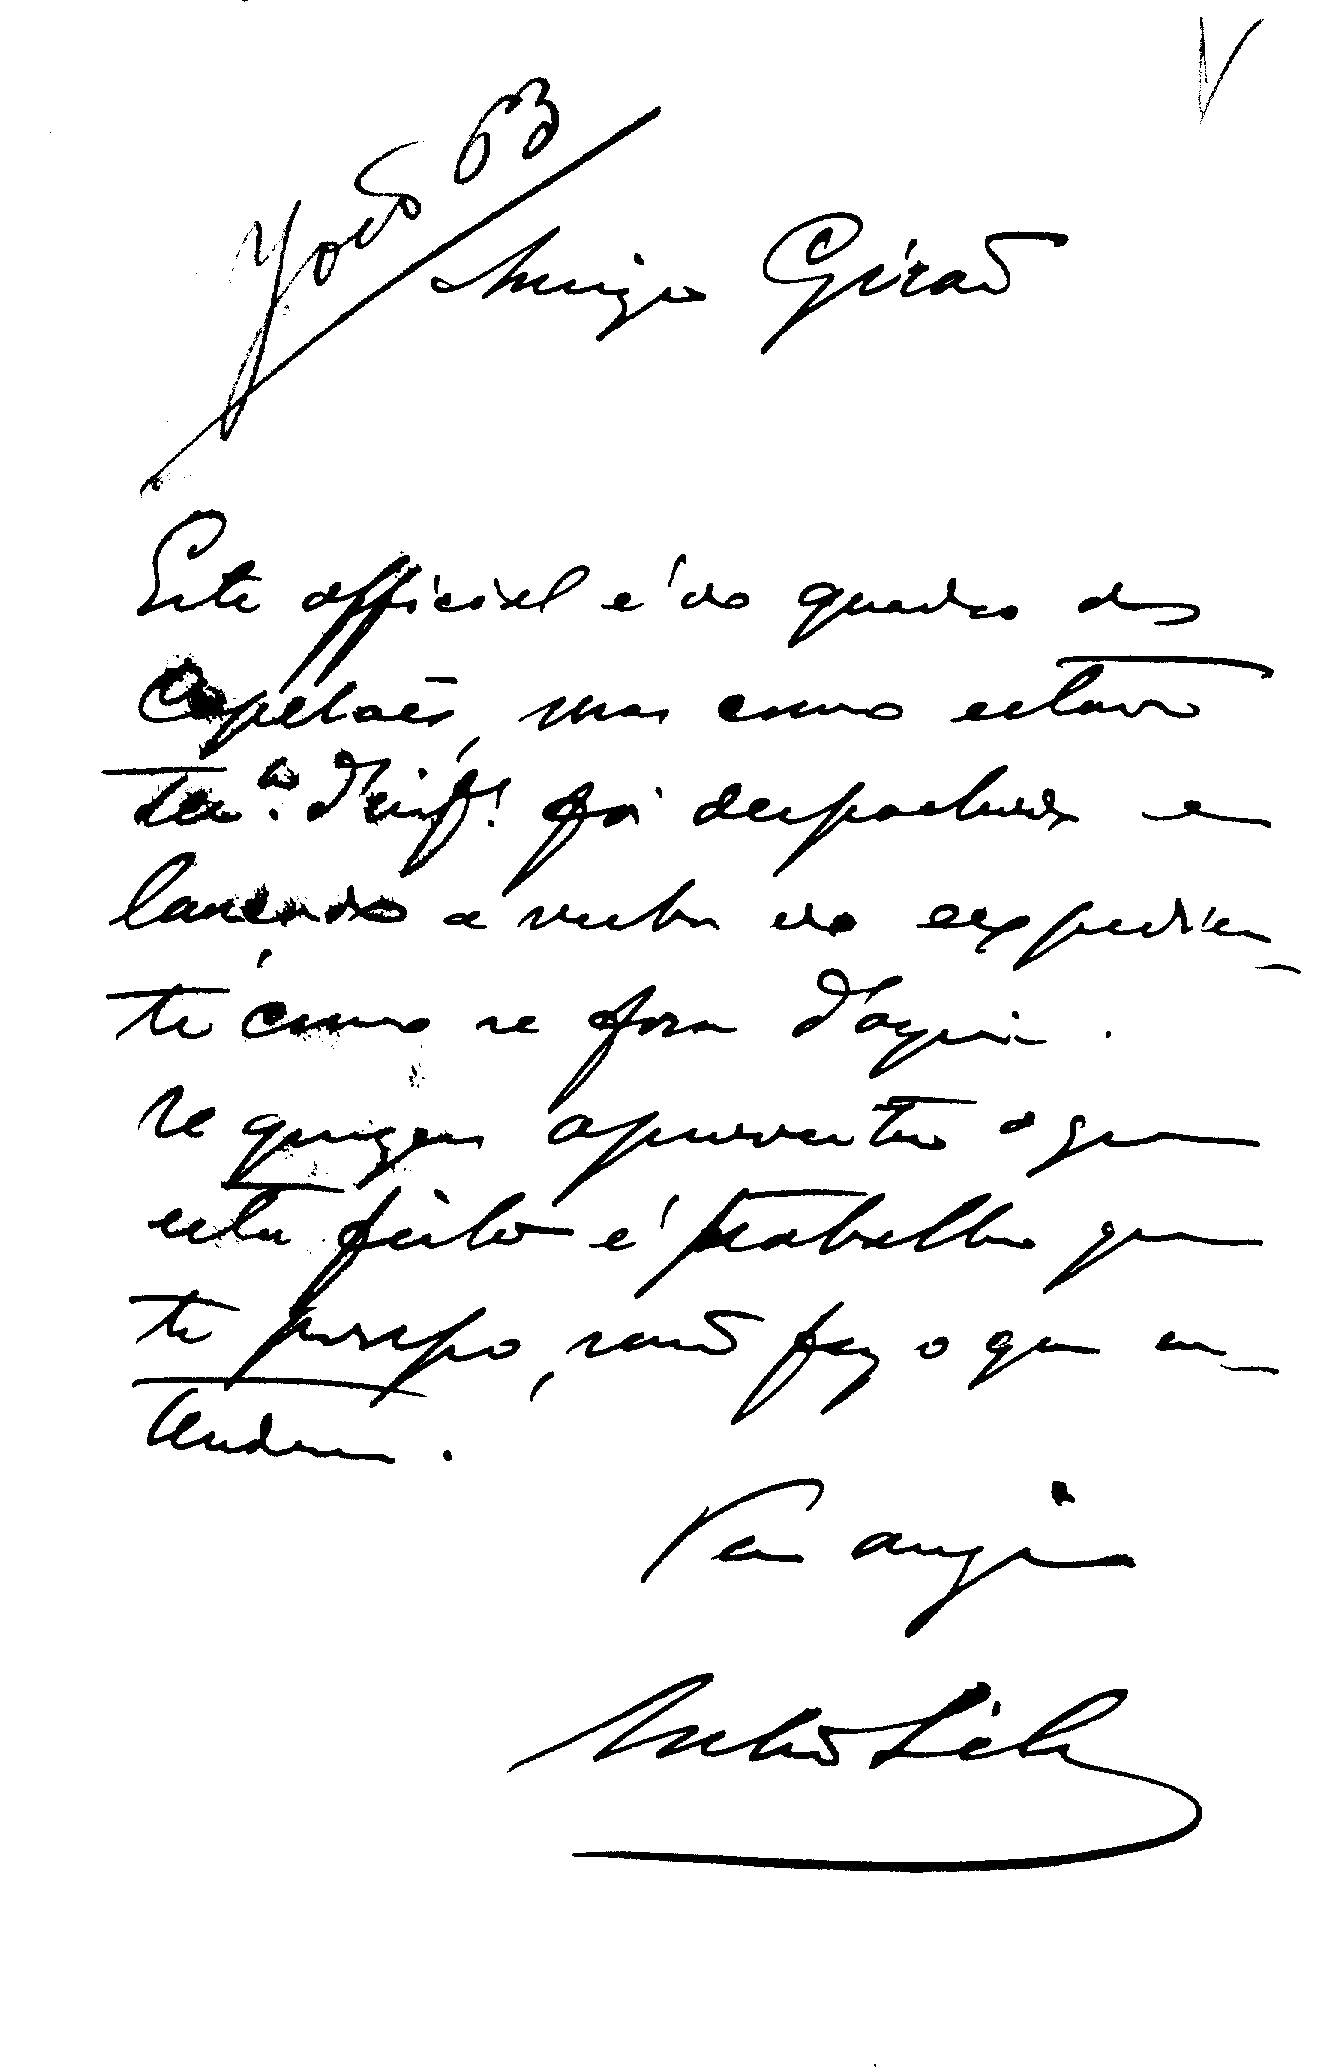 63
Amigo Girão
Este official é do quadro dos
Capelães, mas como estava
d'inf.ª foi despachado e
lançada a verba no expedien-
te como se fora d'aqui.
Se quizer aproveitar o que
esta feito é trabalho que
te poupo, senão faz o que en-
tenderes.
Teu amigo